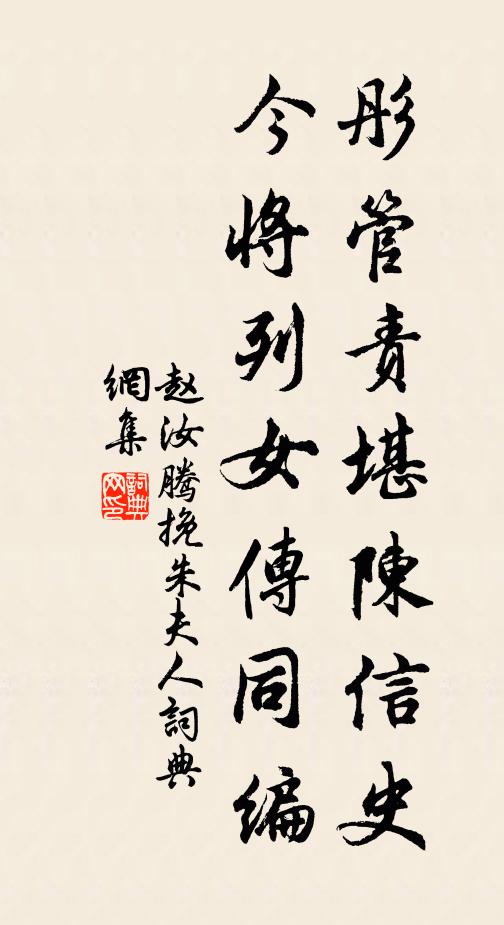 彤管责堪陳信史
今将列女傳同编
赵汝腾挽朱夫人詞典
網集
詞典
网印